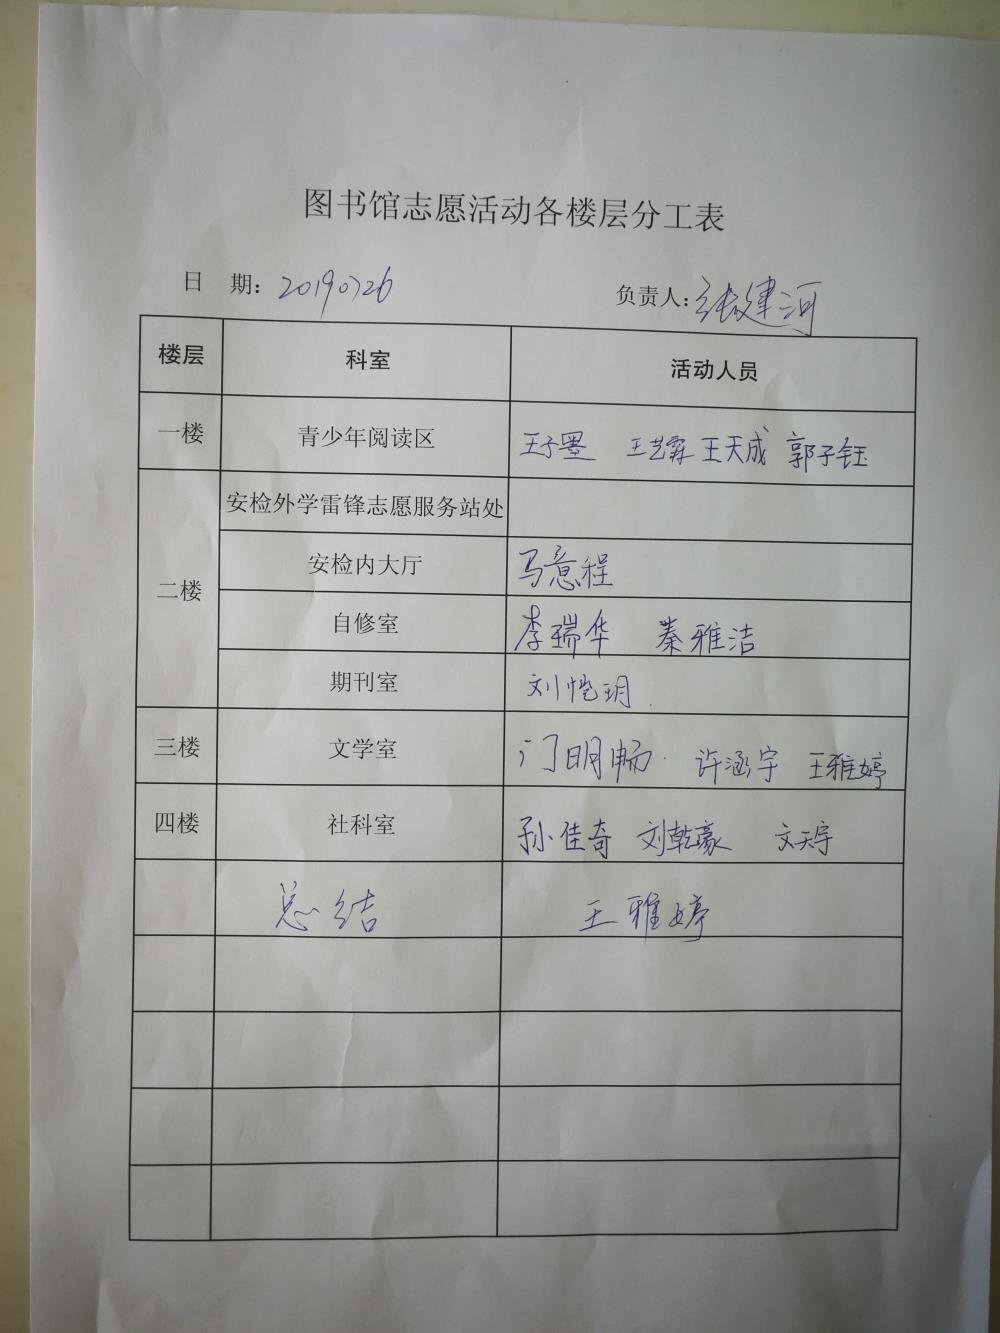 图书馆志愿活动各楼层分工表
日 期：20190726 负责人：张建河
楼层 科室 活动人员
一楼 青少年阅读区 王子墨 王艺霖 王天成 郭子钰
安检外学雷锋志愿服务站处
安检内大厅 马意程
二楼
自修室 李瑞华 秦雅洁
期刊室 刘恺玥
三楼 文学室 门明畅 许涵宇 王雅婷
四楼 社科室 孙佳奇 刘乾豪 文天宇
总结 王雅婷